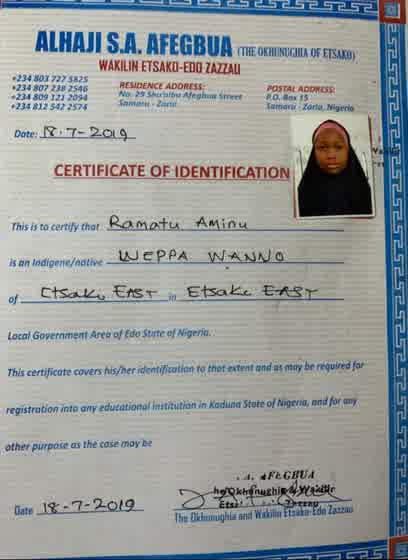 ALHAJI S.A. AFEGBUA (THE OKHUNUGHIA OF ETSAKO)
WAKILIN ETSAKO-EDO ZAZZAU
+234 803 727 5825
+234 807 238 2546
+234 809 121 2094
+234 812 542 2574
RESIDENCE ADDRESS:
No. 29 Shu'aibu Afegbua Street
Samaru - Zaria
POSTAL ADDRESS:
P.O. Box 15
Samaru - Zaria, Nigeria
Date: 18-7-2019
CERTIFICATE OF IDENTIFICATION
This is to certify that Ramatu Aminu
is an Indigene/native WEPPA WANNO
of Etsako EAST in Etsako EAST
Local Government Area of Edo State of Nigeria.
This certificate covers his/her identification to that extent and as may be required for
registration into any educational institution in Kaduna State of Nigeria, and for any
other purpose as the case may be
.A. AFEGBUA
he Okhunughia & Wakilin
Etsa Zazzau
Date 18-7-2019
The Okhunughia and Wakilin Etsako-Edo Zazzau